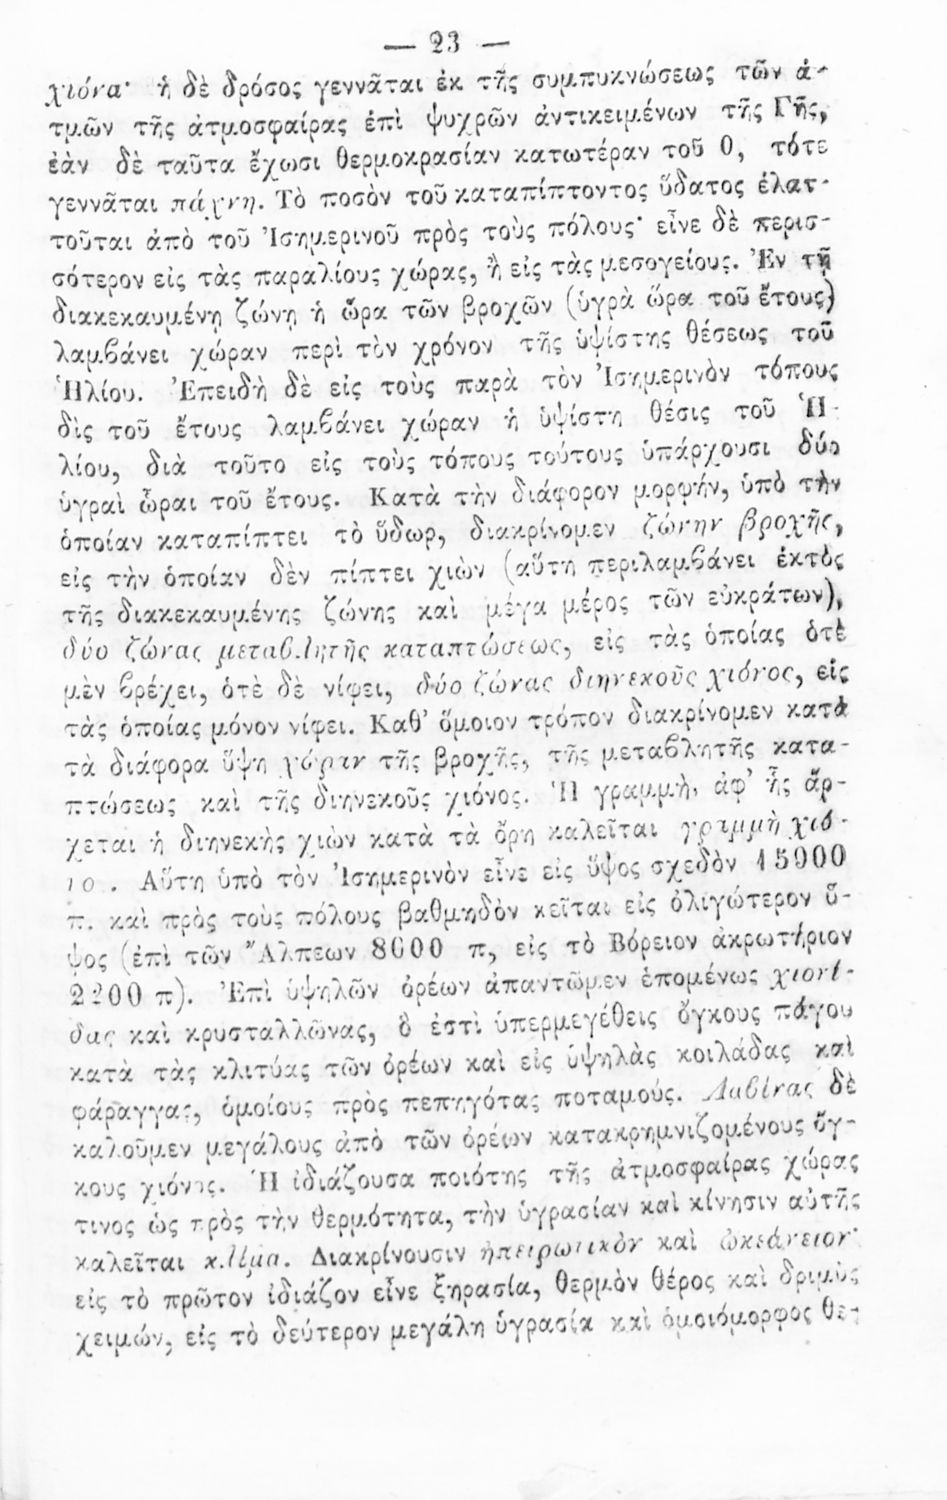 — 23 —
χιόνα· ἡ δὲ δρόσος γεννᾶται ἐκ τῆς συμπυκνώσεως τῶν ἀ-
τμῶν τῆς ἀτμοσφαίρας ἐπὶ ψυχρῶν ἀντικειμένων τῆς Γῆς,
ἐὰν δὲ ταῦτα ἔχωσι θερμοκρασίαν κατωτέραν τοῦ 0, τότε
γεννᾶται πάχνη. Τὸ ποσὸν τοῦ καταπίπτοντος ὕδατος ἐλατ-
τοῦται ἀπὸ τοῦ Ἰσημερινοῦ πρὸς τοὺς πόλους· εἶνε δὲ περισ-
σότερον εἰς τὰς παραλίους χώρας, ἢ εἰς τὰς μεσογείους. Ἐν τῇ
διακεκαυμένῃ ζώνῃ ἡ ὥρα τῶν βροχῶν (ὑγρὰ ὥρα τοῦ ἔτους)
λαμβάνει χώραν περὶ τὸν χρόνον τῆς ὑψίστης θέσεως τοῦ
Ἡλίου. Ἐπειδὴ δὲ εἰς τοὺς παρὰ τὸν Ἰσημερινὸν τόπους
δὶς τοῦ ἔτους λαμβάνει χώραν ἡ ὑψίστη θέσις τοῦ Ἡ-
λίου, διὰ τοῦτο εἰς τοὺς τόπους τούτους ὑπάρχουσι δύο
ὑγραὶ ὧραι τοῦ ἔτους. Κατὰ τὴν διάφορον μορφήν, ὑπὸ τὴν
ὁποίαν καταπίπτει τὸ ὕδωρ, διακρίνομεν ζώνην βροχῆς,
εἰς τὴν ὁποίαν δὲν πίπτει χιὼν (αὕτη περιλαμβάνει ἐκτὸς
τῆς διακεκαυμένης ζώνης καὶ μέγα μέρος τῶν εὐκράτων),
δύο ζώνας μεταβλητῆς καταπτώσεως, εἰς τὰς ὁποίας ὁτὲ
μὲν βρέχει, ὁτὲ δὲ νίφει, δύο ζώνας διηνεκοῦς χιόνος, εἰς
τὰς ὁποίας μόνον νίφει. Καθ’ ὅμοιον τρόπον διακρίνομεν κατὰ
τὰ διάφορα ὕψη χώραν τῆς βροχῆς, τῆς μεταβλητῆς κατα-
πτώσεως καὶ τῆς διηνεκοῦς χιόνος. Ἡ γραμμὴ, ἀφ’ ἧς ἄρ-
χεται ἡ διηνεκὴς χιὼν κατὰ τὰ ὄρη καλεῖται γραμμὴ χιό-
νο . Αὕτη ὑπὸ τὸν Ἰσημερινὸν εἶνε εἰς ὕψος σχεδὸν 15000
π. καὶ πρὸς τοὺς πόλους βαθμηδὸν κεῖται εἰς ὀλιγώτερον ὕ-
ψος (ἐπὶ τῶν Ἄλπεων 8000 π, εἰς τὸ Βόρειον ἀκρωτήριον
2200 π). Ἐπὶ ὑψηλῶν ὀρέων ἀπαντῶμεν ἑπομένως χιονί-
δας καὶ κρυσταλλῶνας, ὅ ἐστὶ ὑπερμεγέθεις ὄγκους πάγου
κατὰ τὰς κλιτύας τῶν ὀρέων καὶ εἰς ὑψηλὰς κοιλάδας καὶ
φάραγγας, ὁμοίους πρὸς πεπηγότας ποταμούς. Λαβίνας δὲ
καλοῦμεν μεγάλους ἀπὸ τῶν ὀρέων κατακρημνιζομένους ὄγ-
κους χιόνος. Ἡ ἰδιάζουσα ποιότης τῆς ἀτμοσφαίρας χώρας
τινος ὡς πρὸς τὴν θερμότητα, τὴν ὑγρασίαν καὶ κίνησιν αὐτῆς
καλεῖται κλῖμα. Διακρίνουσιν ἠπειρωτικὸν καὶ ὠκεάνειον·
εἰς τὸ πρῶτον ἰδιάζον εἶνε ξηρασία, θερμὸν θέρος καὶ δριμὺς
χειμών, εἰς τὸ δεύτερον μεγάλη ὑγρασία καὶ ὁμοιόμορφος θε-